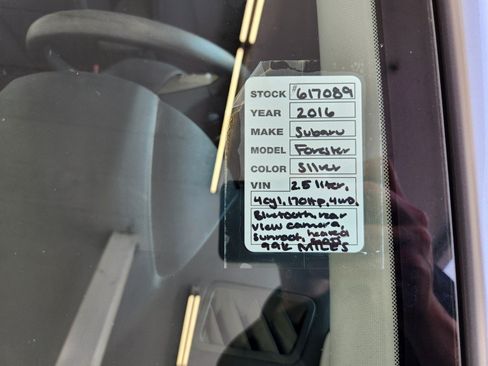 STOCK #617089
YEAR 2016
MAKE Subaru
MODEL Forester
COLOR Silver
VIN 2.5 liter,
4cyl, 170Hp, 4wd,
Bluetooth, rear
view camera,
Sunroof, heated
seats
99K MILES